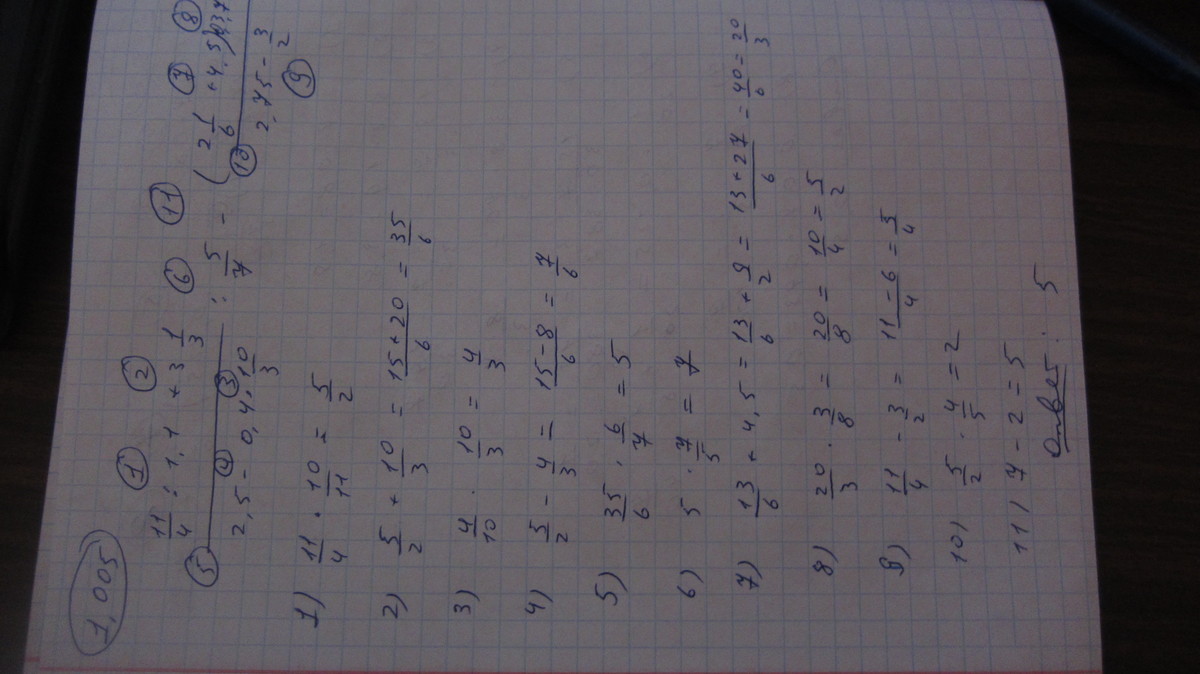 1,005
① ② ⑥ ⑪ ⑦ ⑧
11/4 : 1,1 + 3 1/3
⑤ : 5/7 - (2 1/6 + 4,5)
④ ③ ⑩
2,5 - 0,4 · 10/3
2,75 - 3/2
⑨
1) 11/4 · 10/11 = 5/2
2) 5/2 + 10/3 = 15+20/6 = 35/6
3) 4/10 · 10/3 = 4/3
4) 5/2 - 4/3 = 15-8/6 = 7/6
5) 35/6 · 6/7 = 5
6) 5 · 7/5 = 7
7) 13/6 + 4,5 = 13/6 + 9/2 = 13+27/6 = 40/6 = 20/3
8) 20/3 · 3/8 = 20/8 = 10/4 = 5/2
9) 11/4 - 3/2 = 11-6/4 = 5/4
10) 5/2 · 4/5 = 2
11) 7 - 2 = 5
Ответ: 5